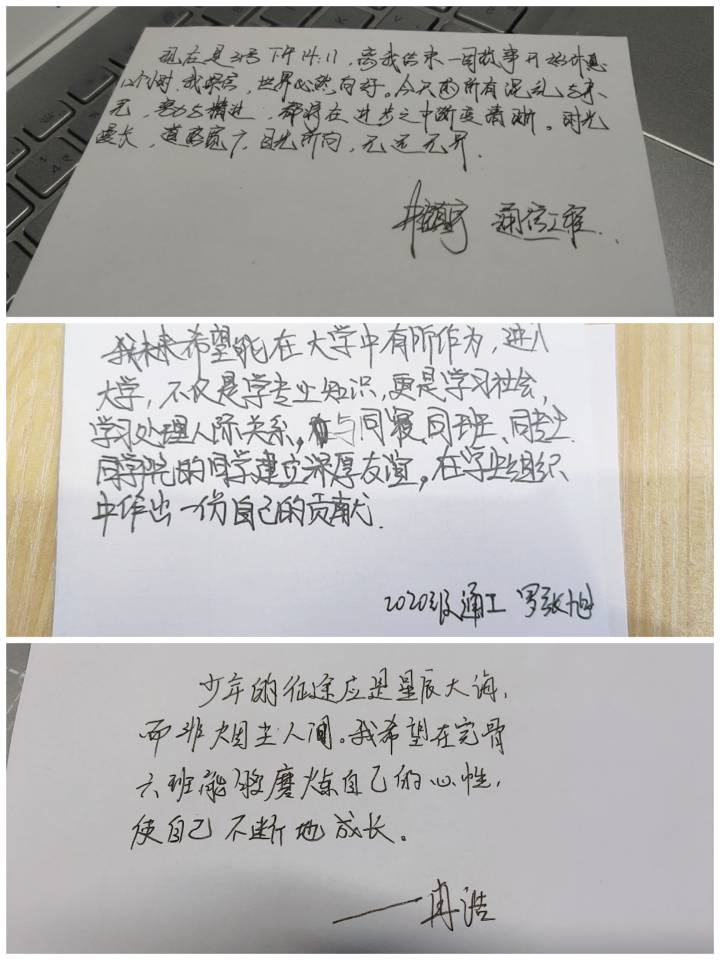 现在是31号下午14:11，离我结束一周故事开始休息
12个小时，我坚信，世界必然向好。今天的所有混乱
都将在进步之中断变清晰。时光
漫长，道路宽广，目光所向，无远无界.
通信工程.
我未来希望能在大学中有所作为，进入
大学，不仅是学专业知识，更是学习社会，
学习处理人际关系，与同寝、同班、同专业
同学院的同学建立深厚友谊。在学生组织
中作出一份自己的贡献.
2020级通工 罗张旭
少年的征途应是星辰大海，
而非烟尘人间。我希望在完骨
六班能够磨炼自己的心性，
使自己不断地成长。
——冉浩